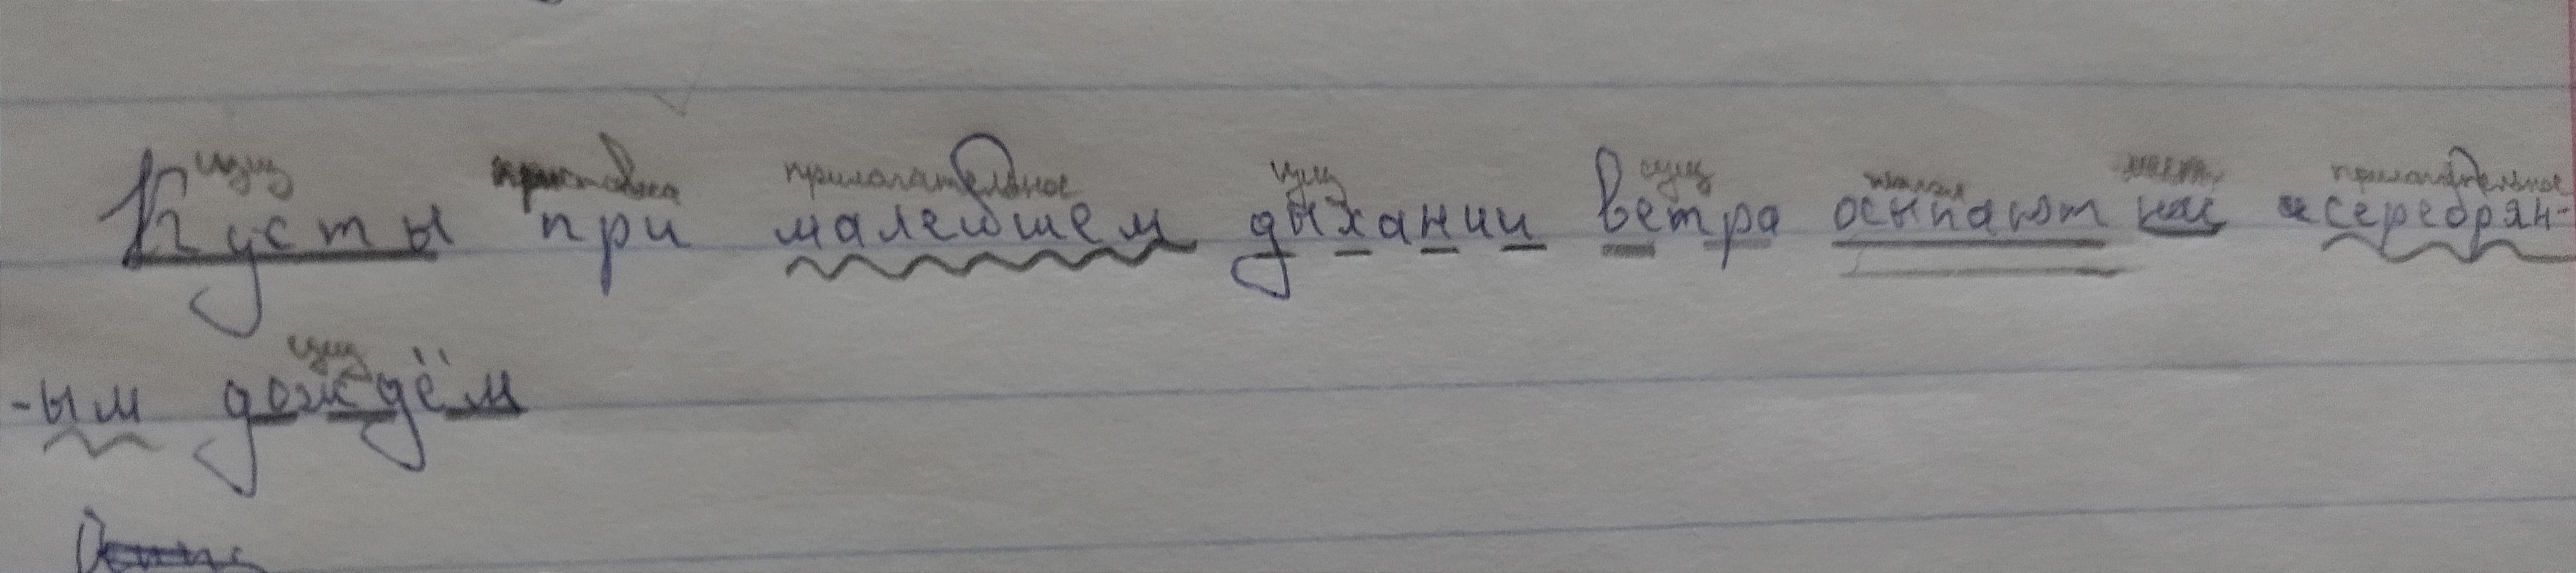 сущ приставка прилагательное сущ сущ глагол мест прилагательное
Кусты при малейшем дыхании ветра осыпают нас серебрян-
сущ
-ым дождём